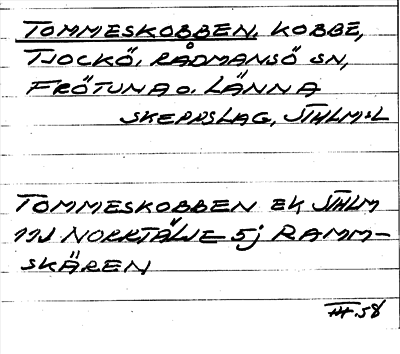 TOMMESKOBBEN, KOBBE,
TJOCKÖ, RÅDMANSÖ SN,
FRÖTUNA O. LÄNNA
SKEPPSLAG, STHLMSL
TOMMESKOBBEN EK STHLM
11J NORRTÄLJE 5j RAMM-
SKÄREN
58